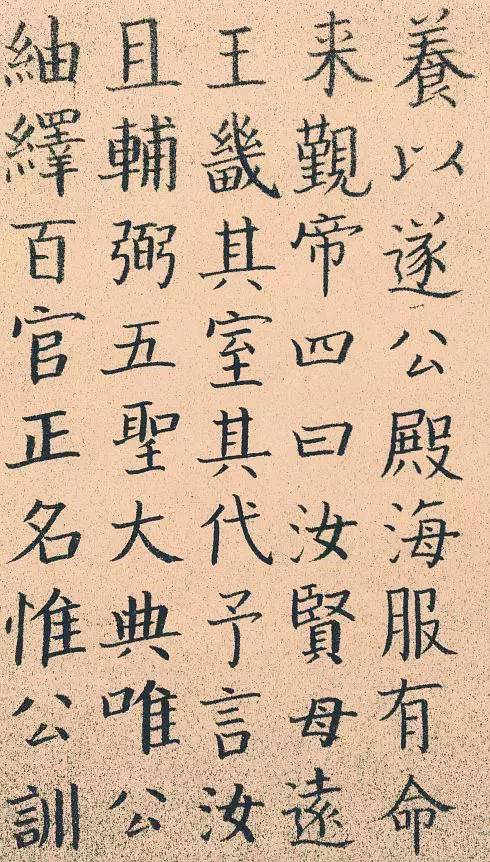 養以遂公殿海服有命
来覲帝四曰汝賢母遠
王畿其室其代予言汝
且輔弼五聖大典唯公
紬繹百官正名惟公訓